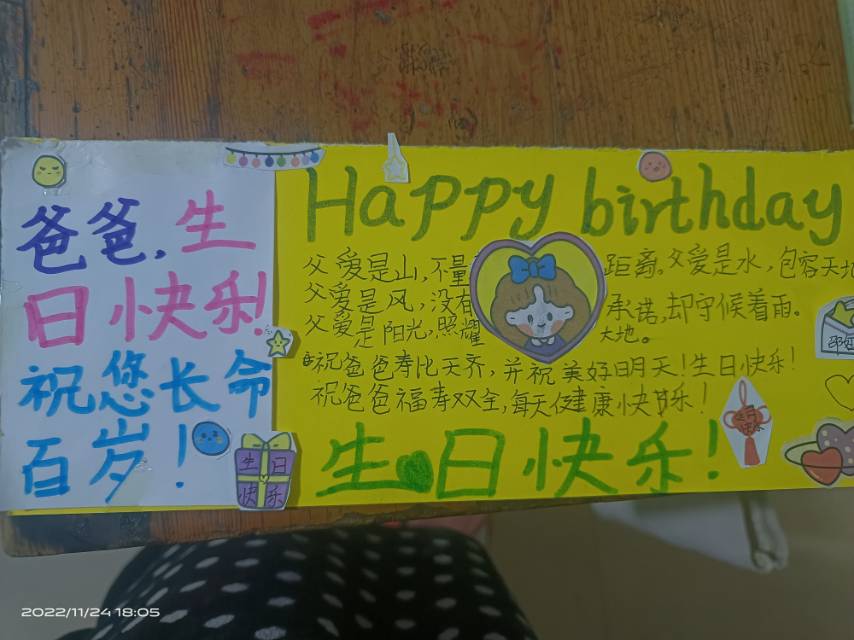 爸爸,生
日快乐!
祝您长命
百岁!
生日
快乐
Happy birthday
父爱是山,不量距离。父爱是水,包容天地
父爱是风,没有承诺,却守候着雨。
父爱是阳光,照耀大地。
祝爸爸寿比天齐,并祝美好明天!生日快乐!
祝爸爸福寿双全,每天健康快乐!
生日快乐!
2022/11/24 18:05